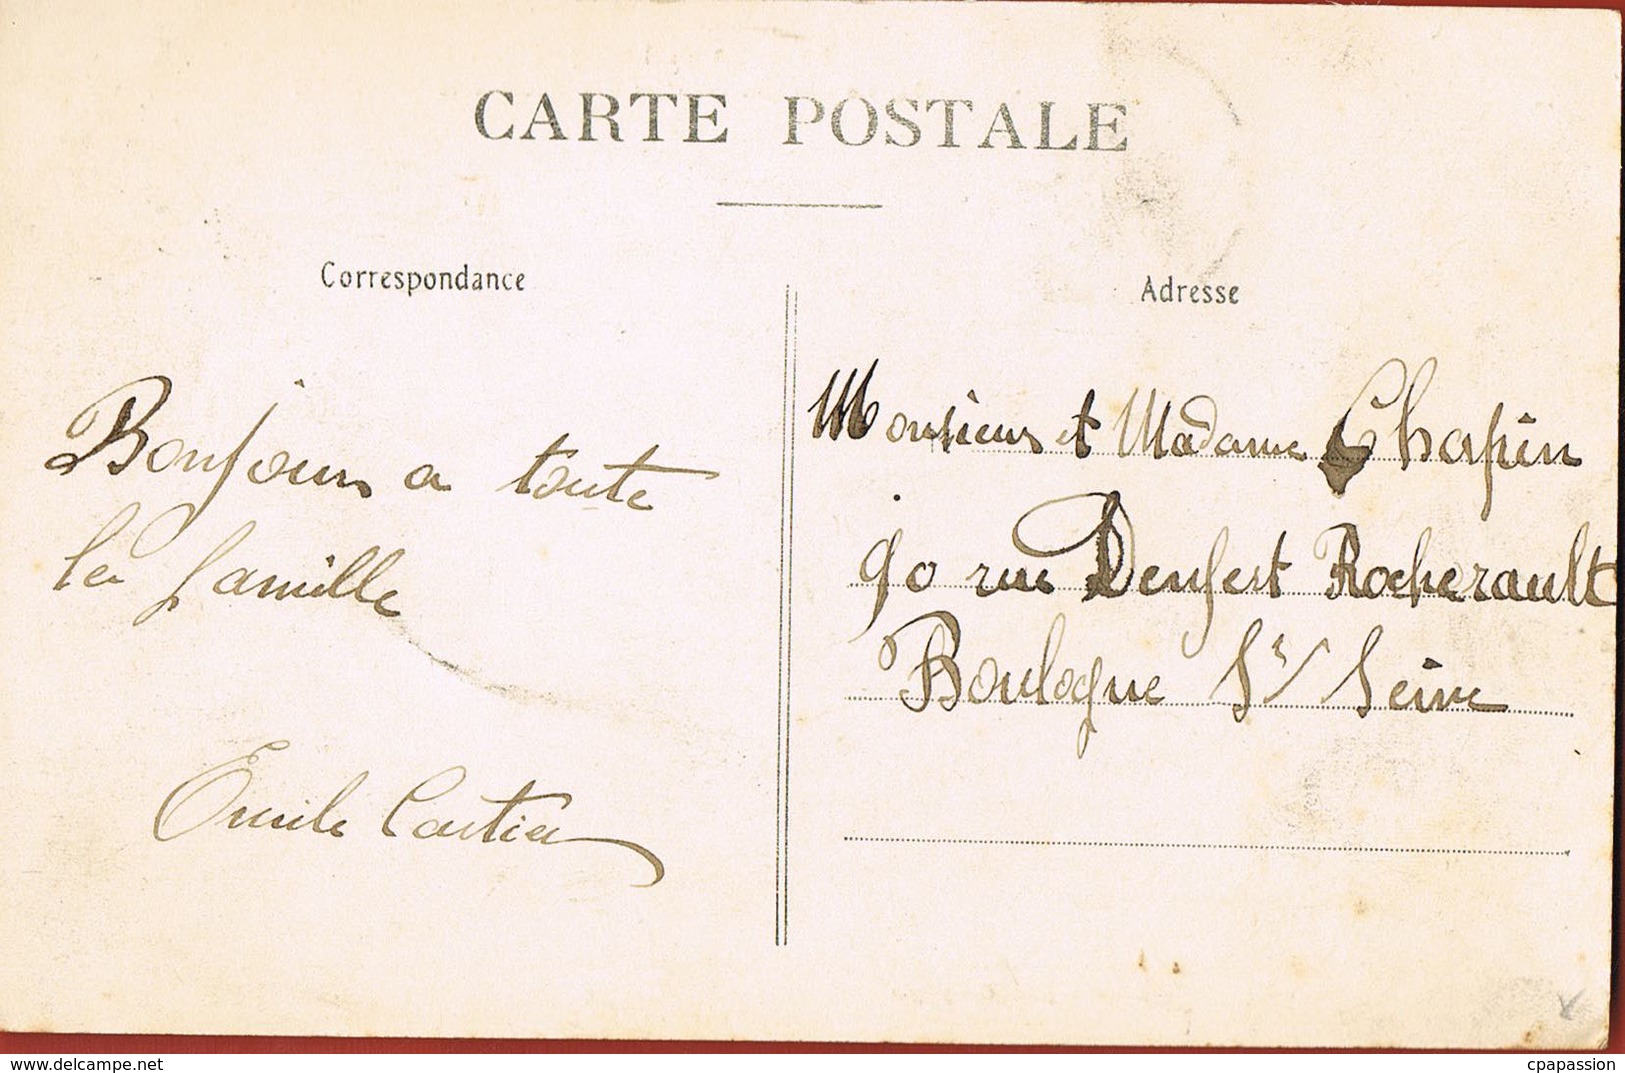 CARTE POSTALE
Correspondance
Bonjour a toute
la famille
Emile Cartier
Adresse
Monsieur et Madame Chapin
90 rue Denfert Rocherault
Boulogne S/ Seine
delcampe.net
cpapassion